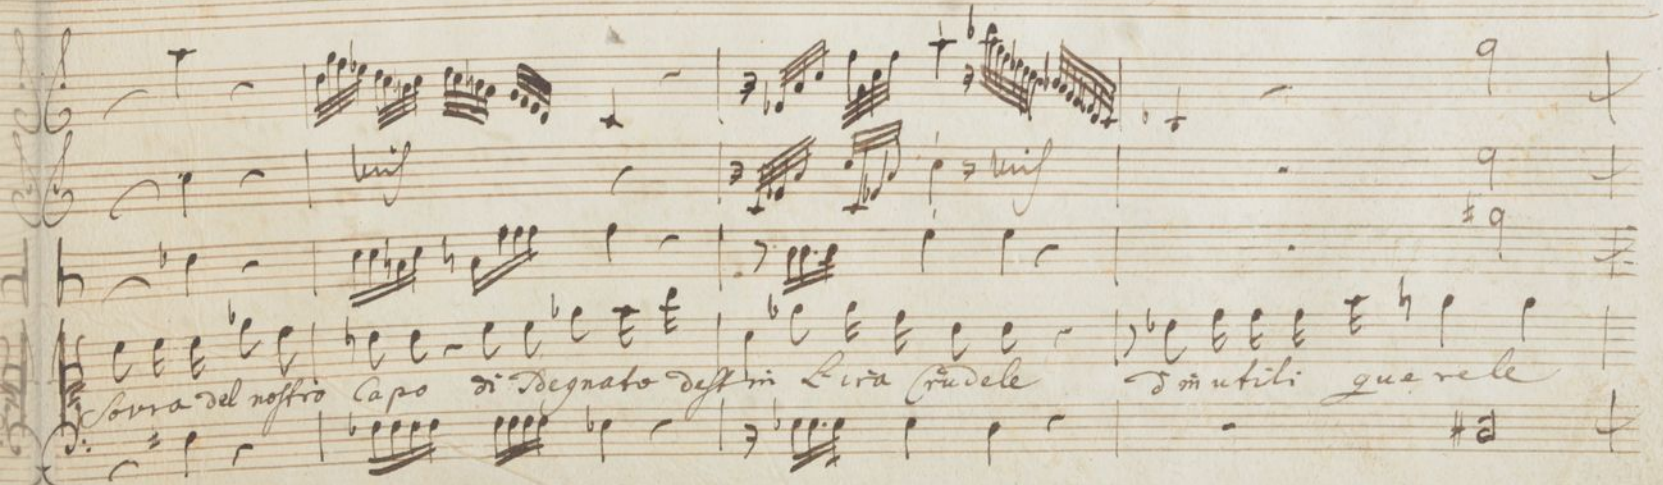 unis
unis
sovra del nostro Capo di Sdegnato destin L'ira Crudele d'inutili querele